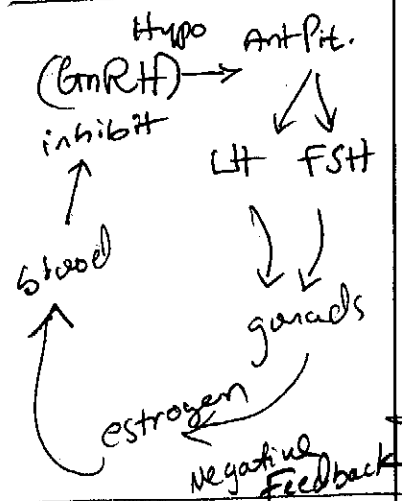 Hypo Ant Pit.
(GnRH)
inhibit
LH FSH
blood
gonads
estrogen
Negative
Feedback